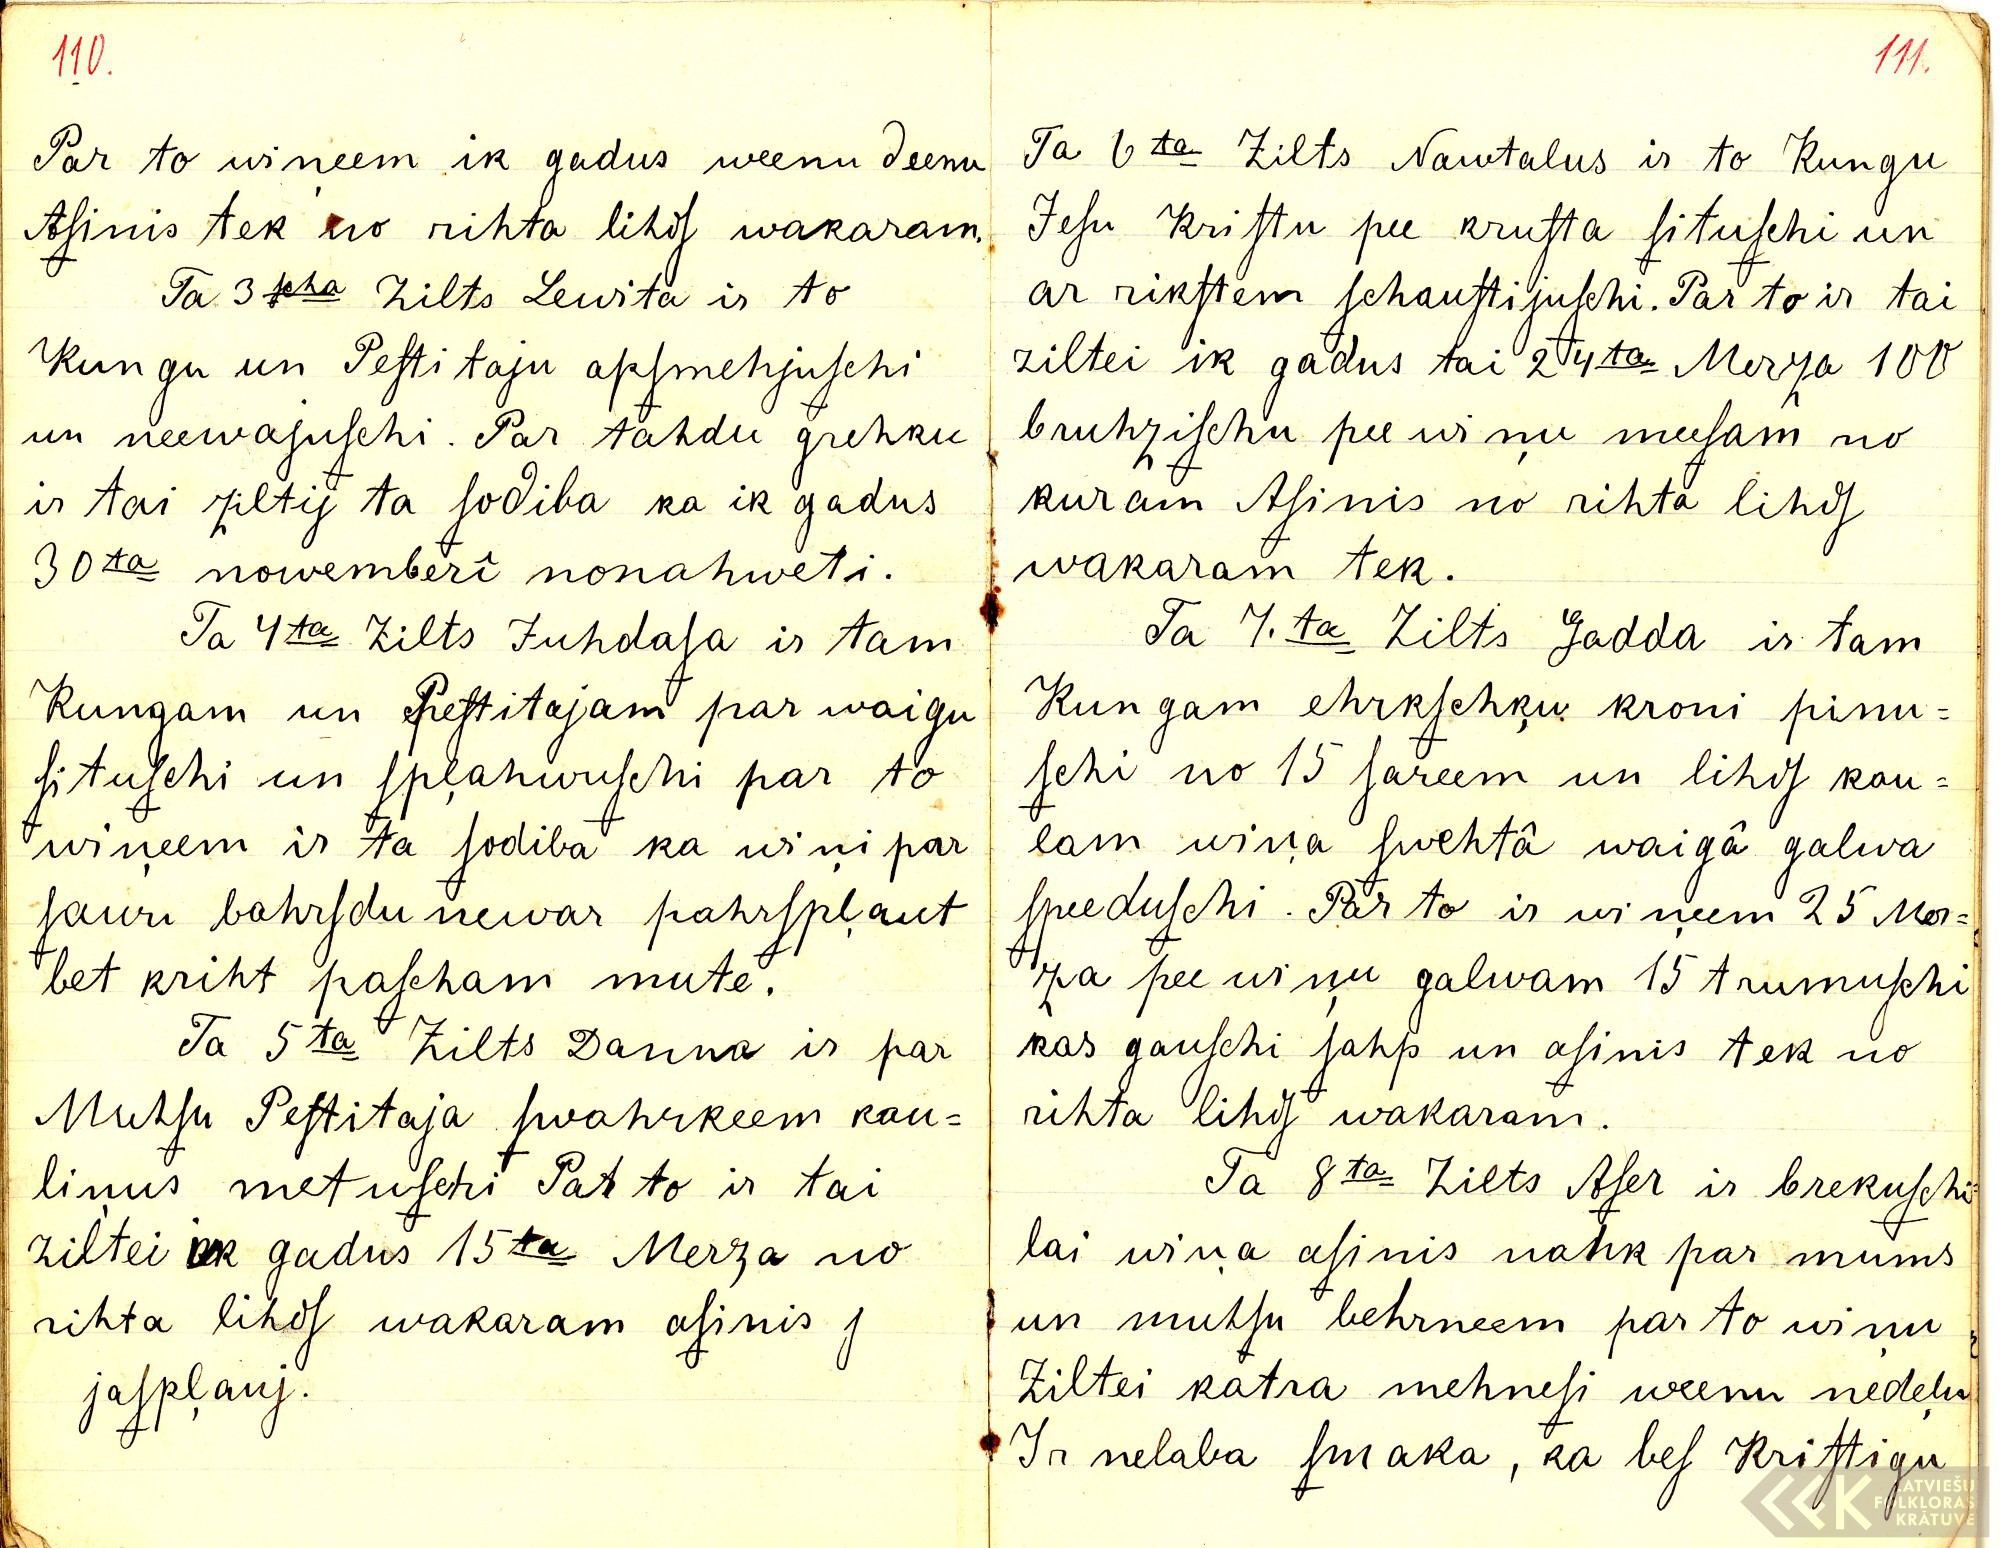 110.
Par to wiņeem ik gadus weenu deenu
Aſinis tek no rihta lihdſ wakaram.
Ta 3ſcha Zilts Lewita ir to
Kungu un Peſtitaju apſmehjuſchi
un neewajuſchi. Par tahdu grehku
ir tai ziltij ta ſodiba ka ik gadus
30ta nowemberî nonahweti.
Ta 4ta Zilts Juhdaſa ir tam
Kungam un Peſtitajam par waigu
ſituſchi un ſpļahwuſchi par to
wiņeem ir ta ſodiba ka wiņi par
ſawu bahrſdu newar pahrſpļaut
bet kriht paſcham mute.
Ta 5ta Zilts Danna ir par
Muhſu Peſtitaja ſwahrkeem kau=
liņus metuſchi Par to ir tai
ziltei ik gadus 15ta Merza no
rihta lihdſ wakaram aſinis j
jaſpļauj.
111.
Ta 6ta Zilts Nawtalus ir to Kungu
Jeſu Kriſtu pee kruſta ſituſchi un
ar rikſtem ſchauſtijuſchi. Par to ir tai
ziltei ik gadus tai 24ta Merza 100
bruhziſchu pee wiņu meeſam no
kuram Aſinis no rihta lihdſ
wakaram tek.
Ta 7.ta Zilts Gadda ir tam
Kungam ehrkſchķu kroni pinu=
ſchi no 15 ſareem un lihdſ kau=
lam wiņa ſwehtâ waigâ galwa
ſpeeduſchi. Par to ir wiņeem 25 Mer=
za pee wiņu galwam 15 trumuſchi
kas gauſchi ſahp un aſinis tek no
rihta lihdſ wakaram.
Ta 8ta Zilts Aſer ir brekuſchi
lai wiņa aſinis nahk par mums
un muhſu behrneem par to wiņu
Ziltei katra mehneſi weenu nedeļu
Ir nelaba ſmaka, ka beſ Kriſtigu
LATVIEŠU
FOLKLORAS
KRĀTUVE